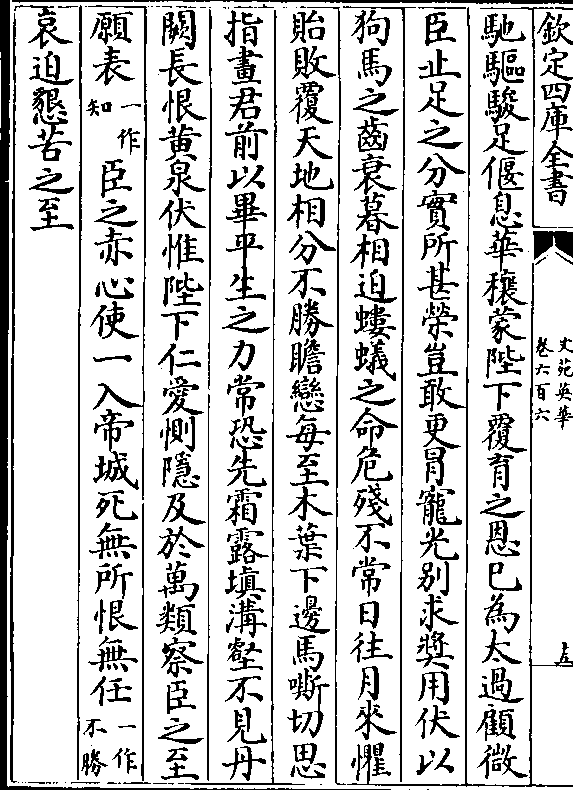 欽定四庫全書
文苑英華
卷六百六
五
馳驅駿足偃息華穰蒙陛下覆育之恩已為太過顧微
臣止足之分實所甚榮豈敢更冒寵光别求奬用伏以
狗馬之齒衰暮相迫螻蟻之命危殘不常日往月來懼
貽敗覆天地相分不勝瞻戀每至木葉下邊馬嘶切思
指畫君前以畢平生之力常恐先霜露填溝壑不見丹
闕長恨黄泉伏惟陛下仁愛惻隱及於萬類察臣之至
願表一作知臣之赤心使一入帝城死無所恨無任一作不勝
哀迫懇苦之至